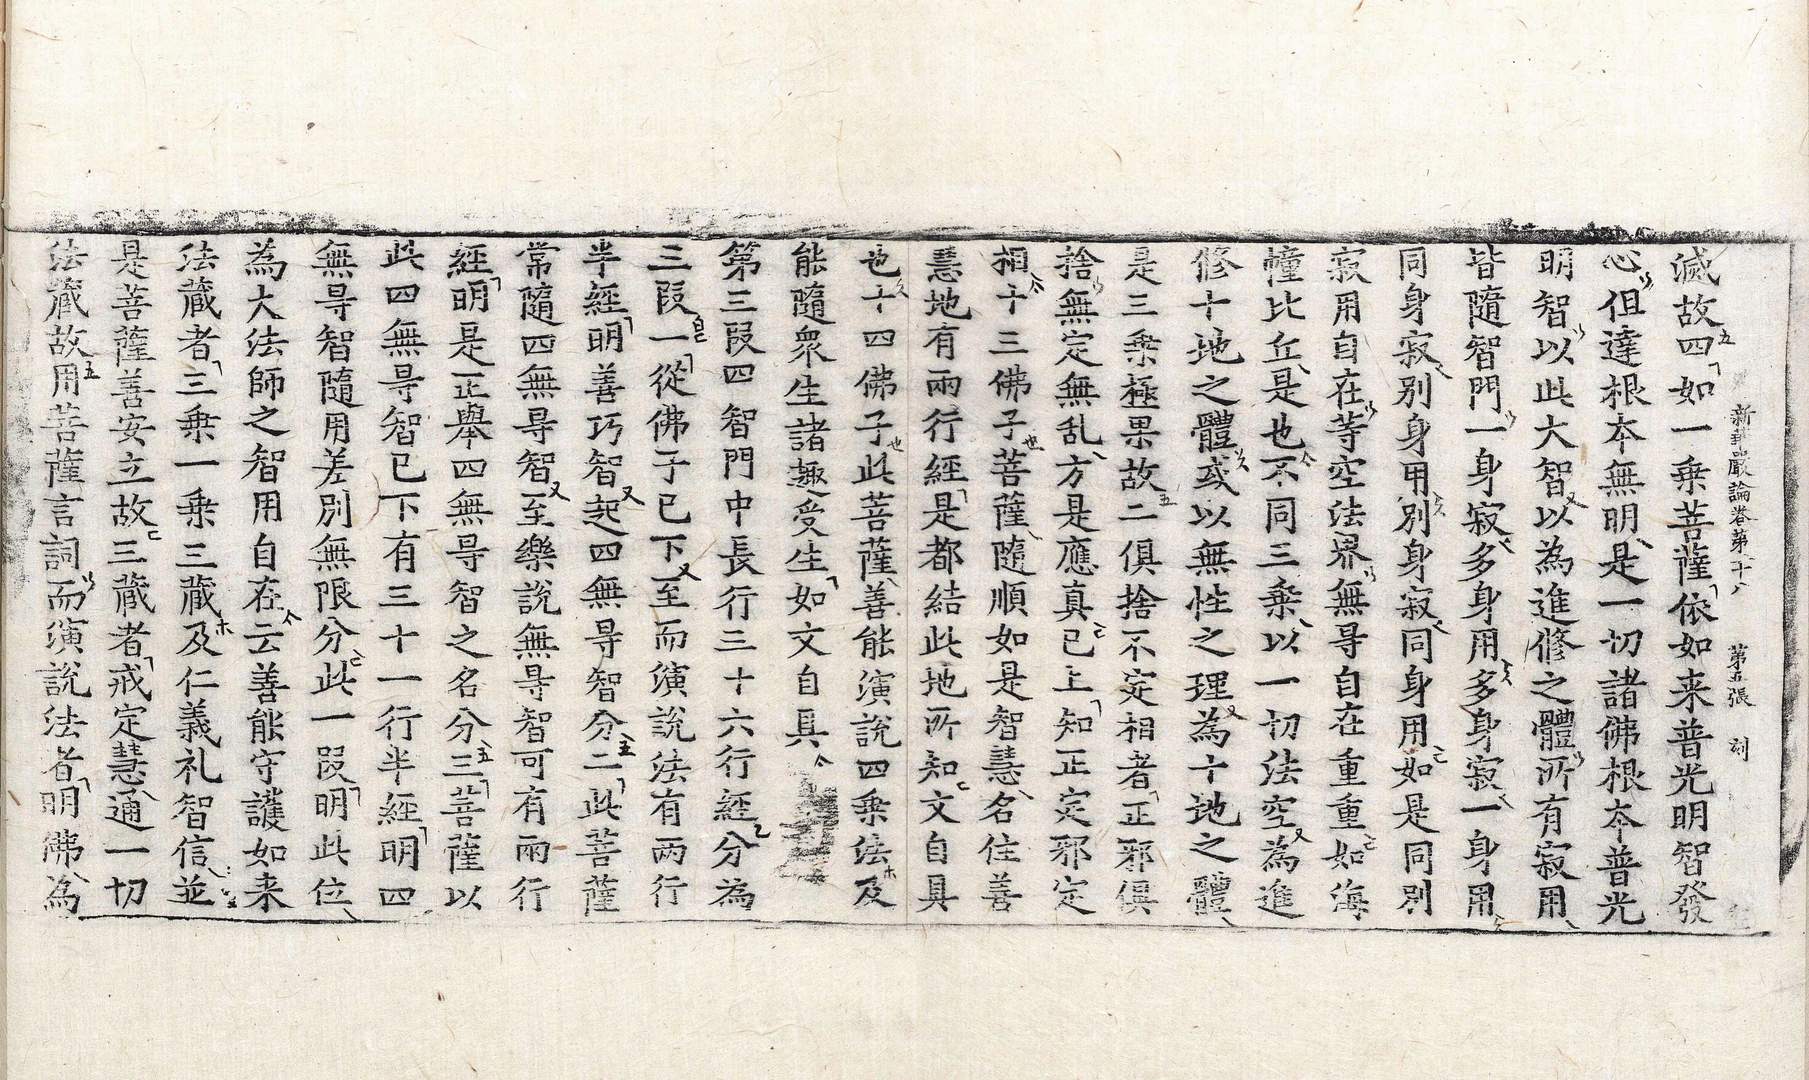 新華嚴論卷第二十八　第五張　刻
滅故四如一乗菩薩依如来普光明智發
心但達根本無明是一切諸佛根本普光
明智以此大智以為進修之體所有寂用
皆隨智門一身寂多身用多身寂一身用
同身寂別身用別身寂同身用如是同別
寂用自在等空法界無㝵自在重重如海
幢比丘是也不同三乗以一切法空為進
修十地之體或以無性之理為十地之體
是三乗極果故二俱捨不定相者正邪俱
捨無定無乱方是應真已上知正定邪定
相十三佛子菩薩隨順如是智慧名住善
慧地有兩行經是都結此地所知文自具
也十四佛子此菩薩善能演說四乗法及
能隨衆生諸趣受生如文自具
第三段四智門中長行三十六行經分為
三段一從佛子已下至而演說法有兩行
半經明善巧智起四無㝵智分二此菩薩
常隨四無㝵智至樂說無㝵智可有兩行
經明是正舉四無㝵智之名分三菩薩以
此四無㝵智已下有三十一行半經明四
無㝵智隨用差別無限分此一段明此位
為大法師之智用自在云善能守護如来
法藏者三乗一乗三藏及仁義礼智信並
是菩薩善安立故三藏者戒定慧通一切
法藏故用菩薩言詞而演說法者明佛為